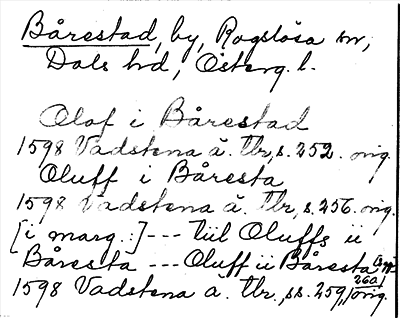 Bårestad, by, Rogslösa sn,
Dals hd, Österg. l.
Olof i Bårestad
1598 Vadstena ä. tbr, s. 252. orig.
Oluff i Båresta
1598 Vadstena ä. tbr, s. 256. orig.
[i marg.:] --- till Oluffs ii
Båresta --- Oluff ii Båresta
1598 Vadstena ä. tbr., ss. 259, 260, orig.